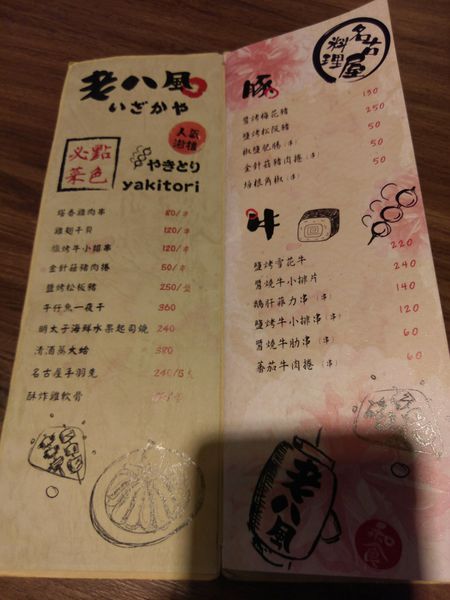 老八風
いざかや
人氣
必點
菜色
やきとり
yakitori
塔香雞肉串 80/串
雞翅干貝 120/串
鹽烤牛小排串 120/串
金針菇豬肉捲 50/串
鹽烤松板豬 250/盤
午仔魚一夜干 360
明太子海鮮水果起司燒 240
清酒蒸大蛤 380
名古屋手羽先 240/5支
酥炸雞軟骨
名古屋
料理
豚
醬烤梅花豬 150
鹽烤松阪豬 250
椒鹽肥腸(串) 50
金針菇豬肉捲(串) 50
培根角椒(串) 50
牛
鹽烤雪花牛 220
醬燒牛小排片 240
鵝肝菲力串(串) 140
鹽烤牛小排串(串) 120
醬燒牛肋串(串) 60
蕃茄牛肉捲(串) 60
老八風
和食